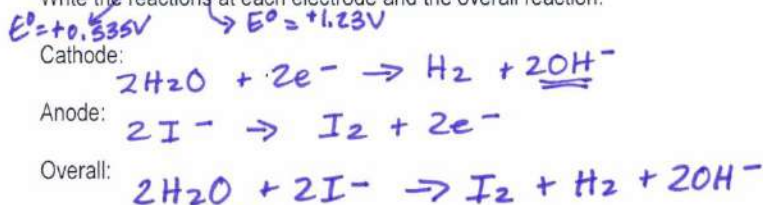 Write the reactions at each electrode and the overall reaction.
E⁰=+0.535V → E⁰ = +1.23V
Cathode:
2H2O + 2e⁻ → H2 + 2OH⁻
Anode: 2I⁻ → I2 + 2e⁻
Overall: 2H2O + 2I⁻ → I2 + H2 + 2OH⁻